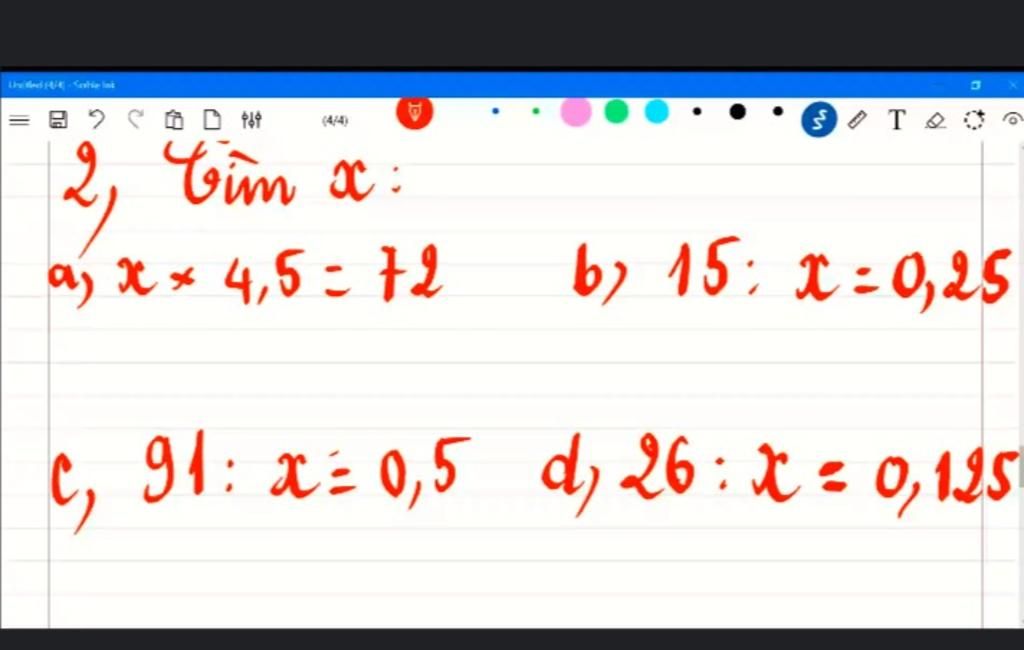 Untitled (4/4) - Scrble Ink
(4/4)
T
2, Tìm x:
a, x × 4,5 = 72 b, 15 : x = 0,25
c, 91 : x = 0,5 d, 26 : x = 0,125